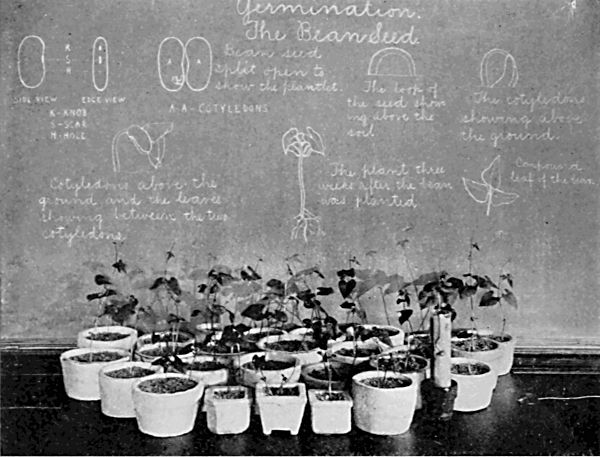 Germination.
The Bean Seed.
K
S
H
SIDE VIEW
EDGE VIEW
K-KNOB
S-SCAR
H-HOLE
A
A
A-A-COTYLEDONS
Bean seed
split open to
show the plantlet.
The loop of
the seed show
ing above the
soil.
The cotyledons
showing above
the ground.
Cotyledons above the
ground and the leaves
showing between the two
cotyledons.
The plant three
weeks after the bean
was planted
Compound
leaf of the bean